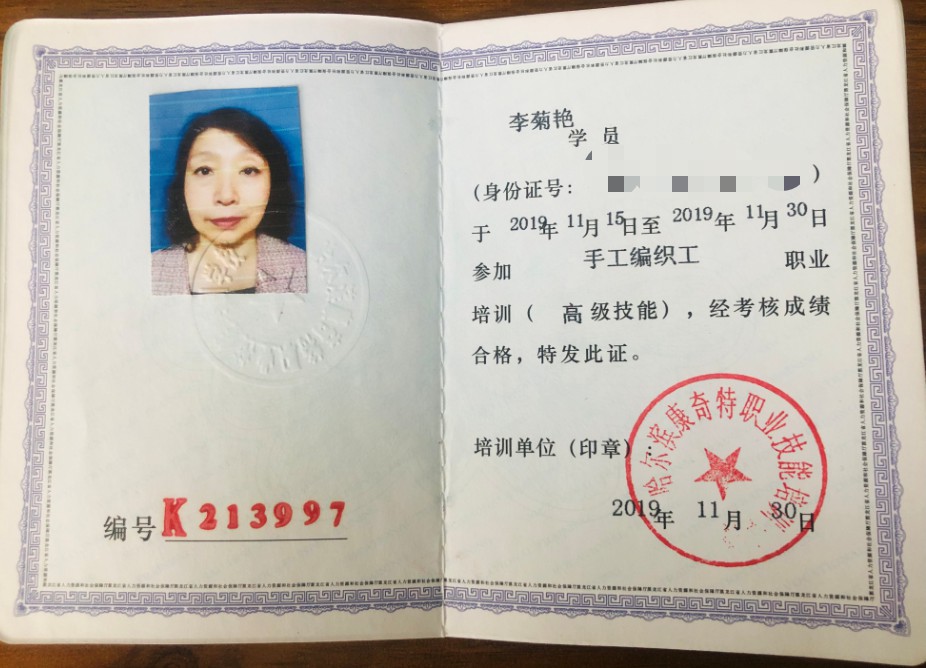 编号 K213997
李菊艳
学 员
(身份证号: )
于 2019年 11月 15日至 2019年 11月 30日
参加 手工编织工 职业
培训( 高级技能),经考核成绩
合格,特发此证。
培训单位(印章):
哈尔滨康奇特职业技能培训
2019年 11月 30日